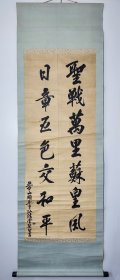 聖戰萬里蘇皇風
日章五色交和平